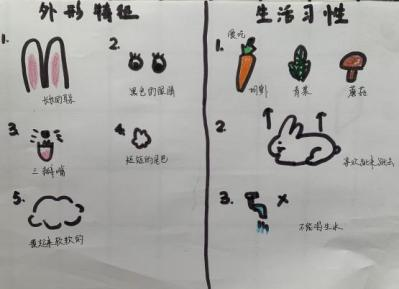 外形特征
1.
长长的耳朵
2.
黑色的眼睛
3.
三瓣嘴
4.
短短的尾巴
5.
摸起来软软的
生活习性
1.
爱吃
胡萝卜
青菜
蘑菇
2.
喜欢跳来跳去
3.
不能喝生水